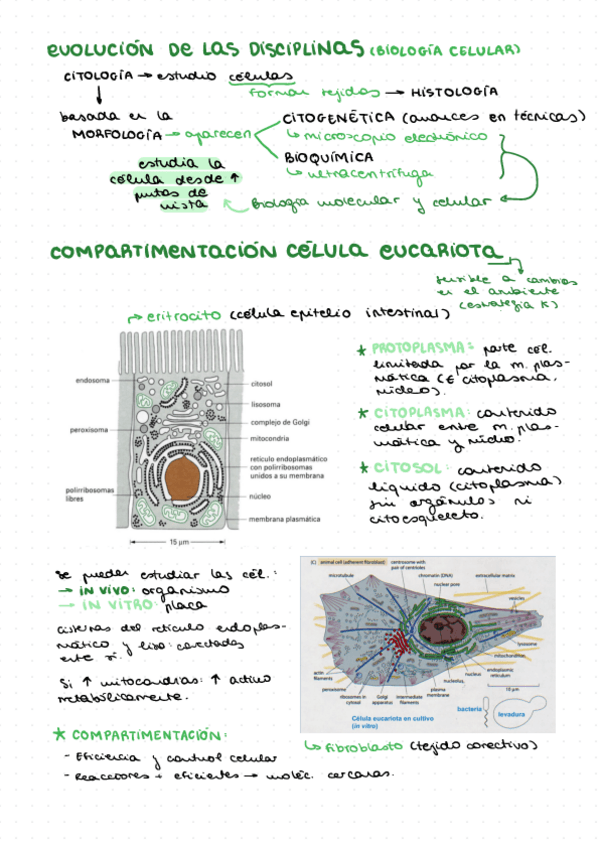 EVOLUCIÓN DE LAS DISCIPLINAS (BIOLOGÍA CELULAR)
CITOLOGÍA → estudio células
forman tejidos → HISTOLOGÍA
basada en la
MORFOLOGÍA → aparecen
CITOGENÉTICA (avances en técnicas)
↳ microscopio electrónico
BIOQUÍMICA
↳ ultracentrífuga
estudia la
célula desde ↑
puntos de
vista
Biología molecular y celular
COMPARTIMENTACIÓN CÉLULA EUCARIOTA
sensible a cambios
en el ambiente
(estrategia K)
eritrocito (célula epitelio intestinal)
endosoma
citosol
lisosoma
peroxisoma
complejo de Golgi
mitocondria
retículo endoplasmático
con polirribosomas
unidos a su membrana
polirribosomas
libres
núcleo
membrana plasmática
15 µm
★ PROTOPLASMA: parte cél.
limitada por la m. plas-
mática (∈ citoplasma,
núcleo).
★ CITOPLASMA: contenido
celular entre m. plas-
mática y núcleo.
★ CITOSOL: contenido
líquido (citoplasma)
sin orgánulos ni
citoesqueleto.
Se pueden estudiar las cél.:
→ IN VIVO: organismo
→ IN VITRO: placa
cisternas del retículo endoplas-
mático y liso: conectadas
entre sí.
Si ↑ mitocondrias: ↑ activo
metabólicamente.
(C) animal cell (adherent fibroblast)
centrosome with
pair of centrioles
microtubule
chromatin (DNA)
extracellular matrix
nuclear pore
vesicles
lysosome
mitochondrion
actin
filaments
endoplasmic
reticulum
nucleus
nucleolus
peroxisome
ribosomes in
cytosol
Golgi
apparatus
intermediate
filaments
plasma
membrane
10 µm
Célula eucariota en cultivo
(in vitro)
bacteria
levadura
↳ fibroblasto (tejido conectivo)
★ COMPARTIMENTACIÓN:
- Eficiencia y control celular
- Reacciones + eficientes → moléc. cercanas.